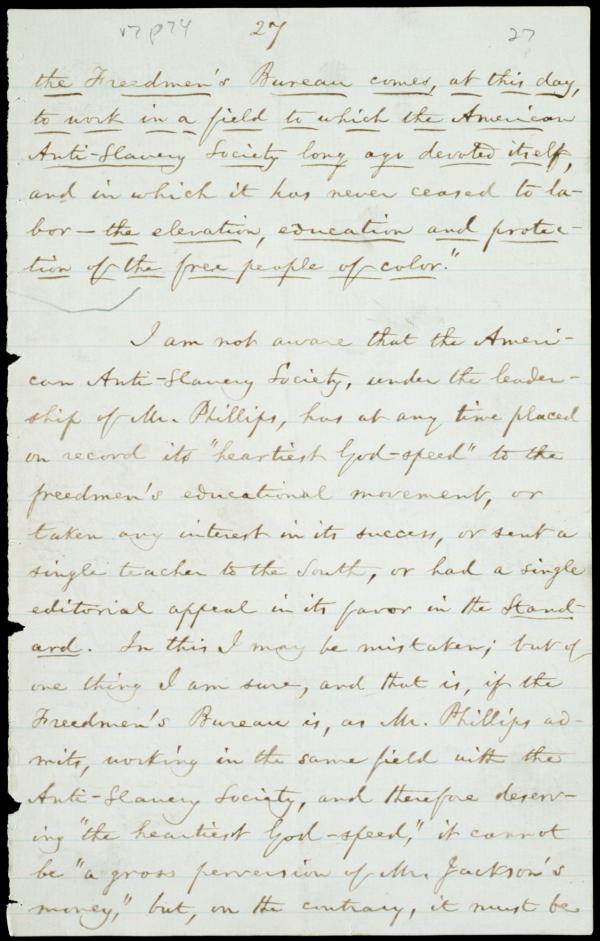 v7 p74 27 27
the Freedmen's Bureau comes, at this day,
to work in a field to which the American
Anti-Slavery Society long ago devoted itself,
and in which it has never ceased to la-
bor — the elevation, education and protec-
tion of the free people of color."
I am not aware that the Ameri-
can Anti-Slavery Society, under the leader-
ship of Mr. Phillips, has at any time placed
on record its "heartiest God-speed" to the
freedmen's educational movement, or
taken any interest in its success, or sent a
single teacher to the South, or had a single
editorial appeal in its favor in the Stand-
ard. In this I may be mistaken; but of
one thing I am sure, and that is, if the
Freedmen's Bureau is, as Mr. Phillips ad-
mits, working in the same field with the
Anti-Slavery Society, and therefore deserv-
ing "the heartiest God-speed," it cannot
be "a gross perversion of Mr. Jackson's
money," but, on the contrary, it must be